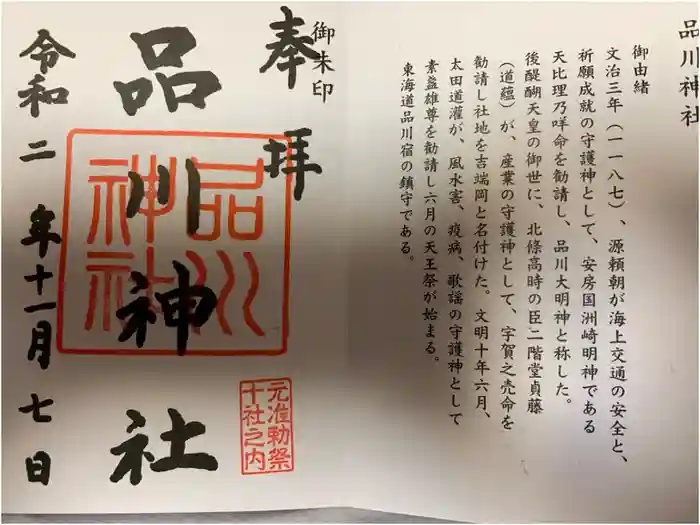 品川神社
御由緒
文治三年（一一八七）、源頼朝が海上交通の安全と、
祈願成就の守護神として、安房国洲崎明神である
天比理乃咩命を勧請し、品川大明神と称した。
後醍醐天皇の御世に、北條高時の臣二階堂貞藤
（道蘊）が、産業の守護神として、宇賀之売命を
勧請し社地を吉端岡と名付けた。文明十年六月、
太田道灌が、風水害、疫病、歌謡の守護神として
素盞雄尊を勧請し六月の天王祭が始まる。
東海道品川宿の鎮守である。
御朱印
奉拝
品川神社
品川神社
元准勅祭
十社之内
令和二年十一月七日